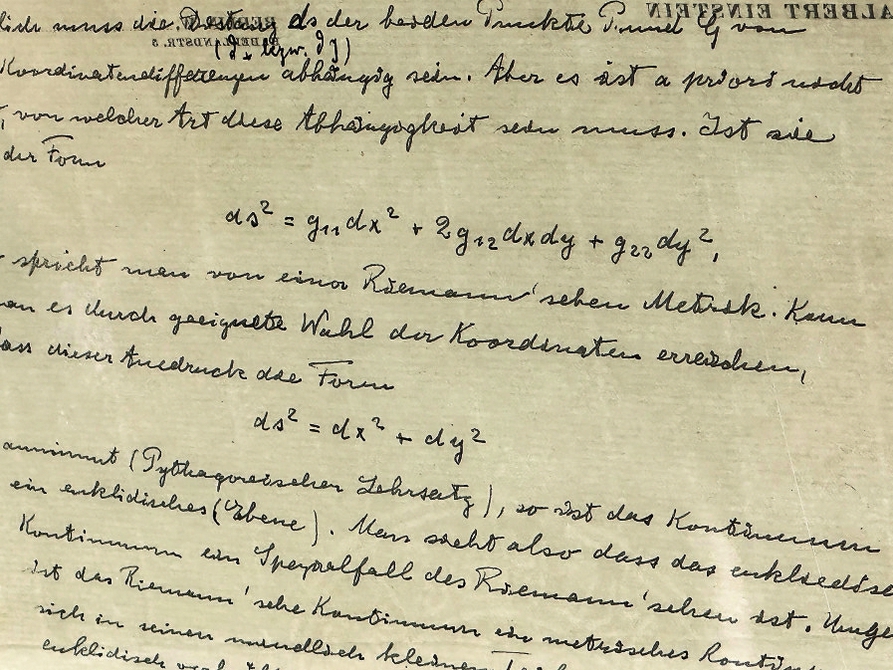 ALBERT EINSTEIN
lich muss die ds der beiden Punkte P und G von
HABERLANDSTR. 5
Koordinatendifferenzen abhängig sein. Aber es ist a priori nicht
von welcher Art diese Abhängigkeit sein muss. Ist sie
der Form
ds² = g₁₁dx² + 2g₁₂dxdy + g₂₂dy²,
spricht man von einer Riemann'schen Metrik. Kann
an es durch geeignete Wahl der Koordinaten erreichen,
dass dieser Ausdruck die Form
ds² = dx² + dy²
annimmt (Pythagoreischer Lehrsatz), so ist das Kontinuum
ein euklidisches (Ebene). Man sieht also dass das euklidische
Kontinuum ein Spezialfall des Riemann'schen ist. Umge
ist das Riemann'sche Kontinuum ein metrisches Kontin
sich in seinen unendlich kleinen
euklidisch